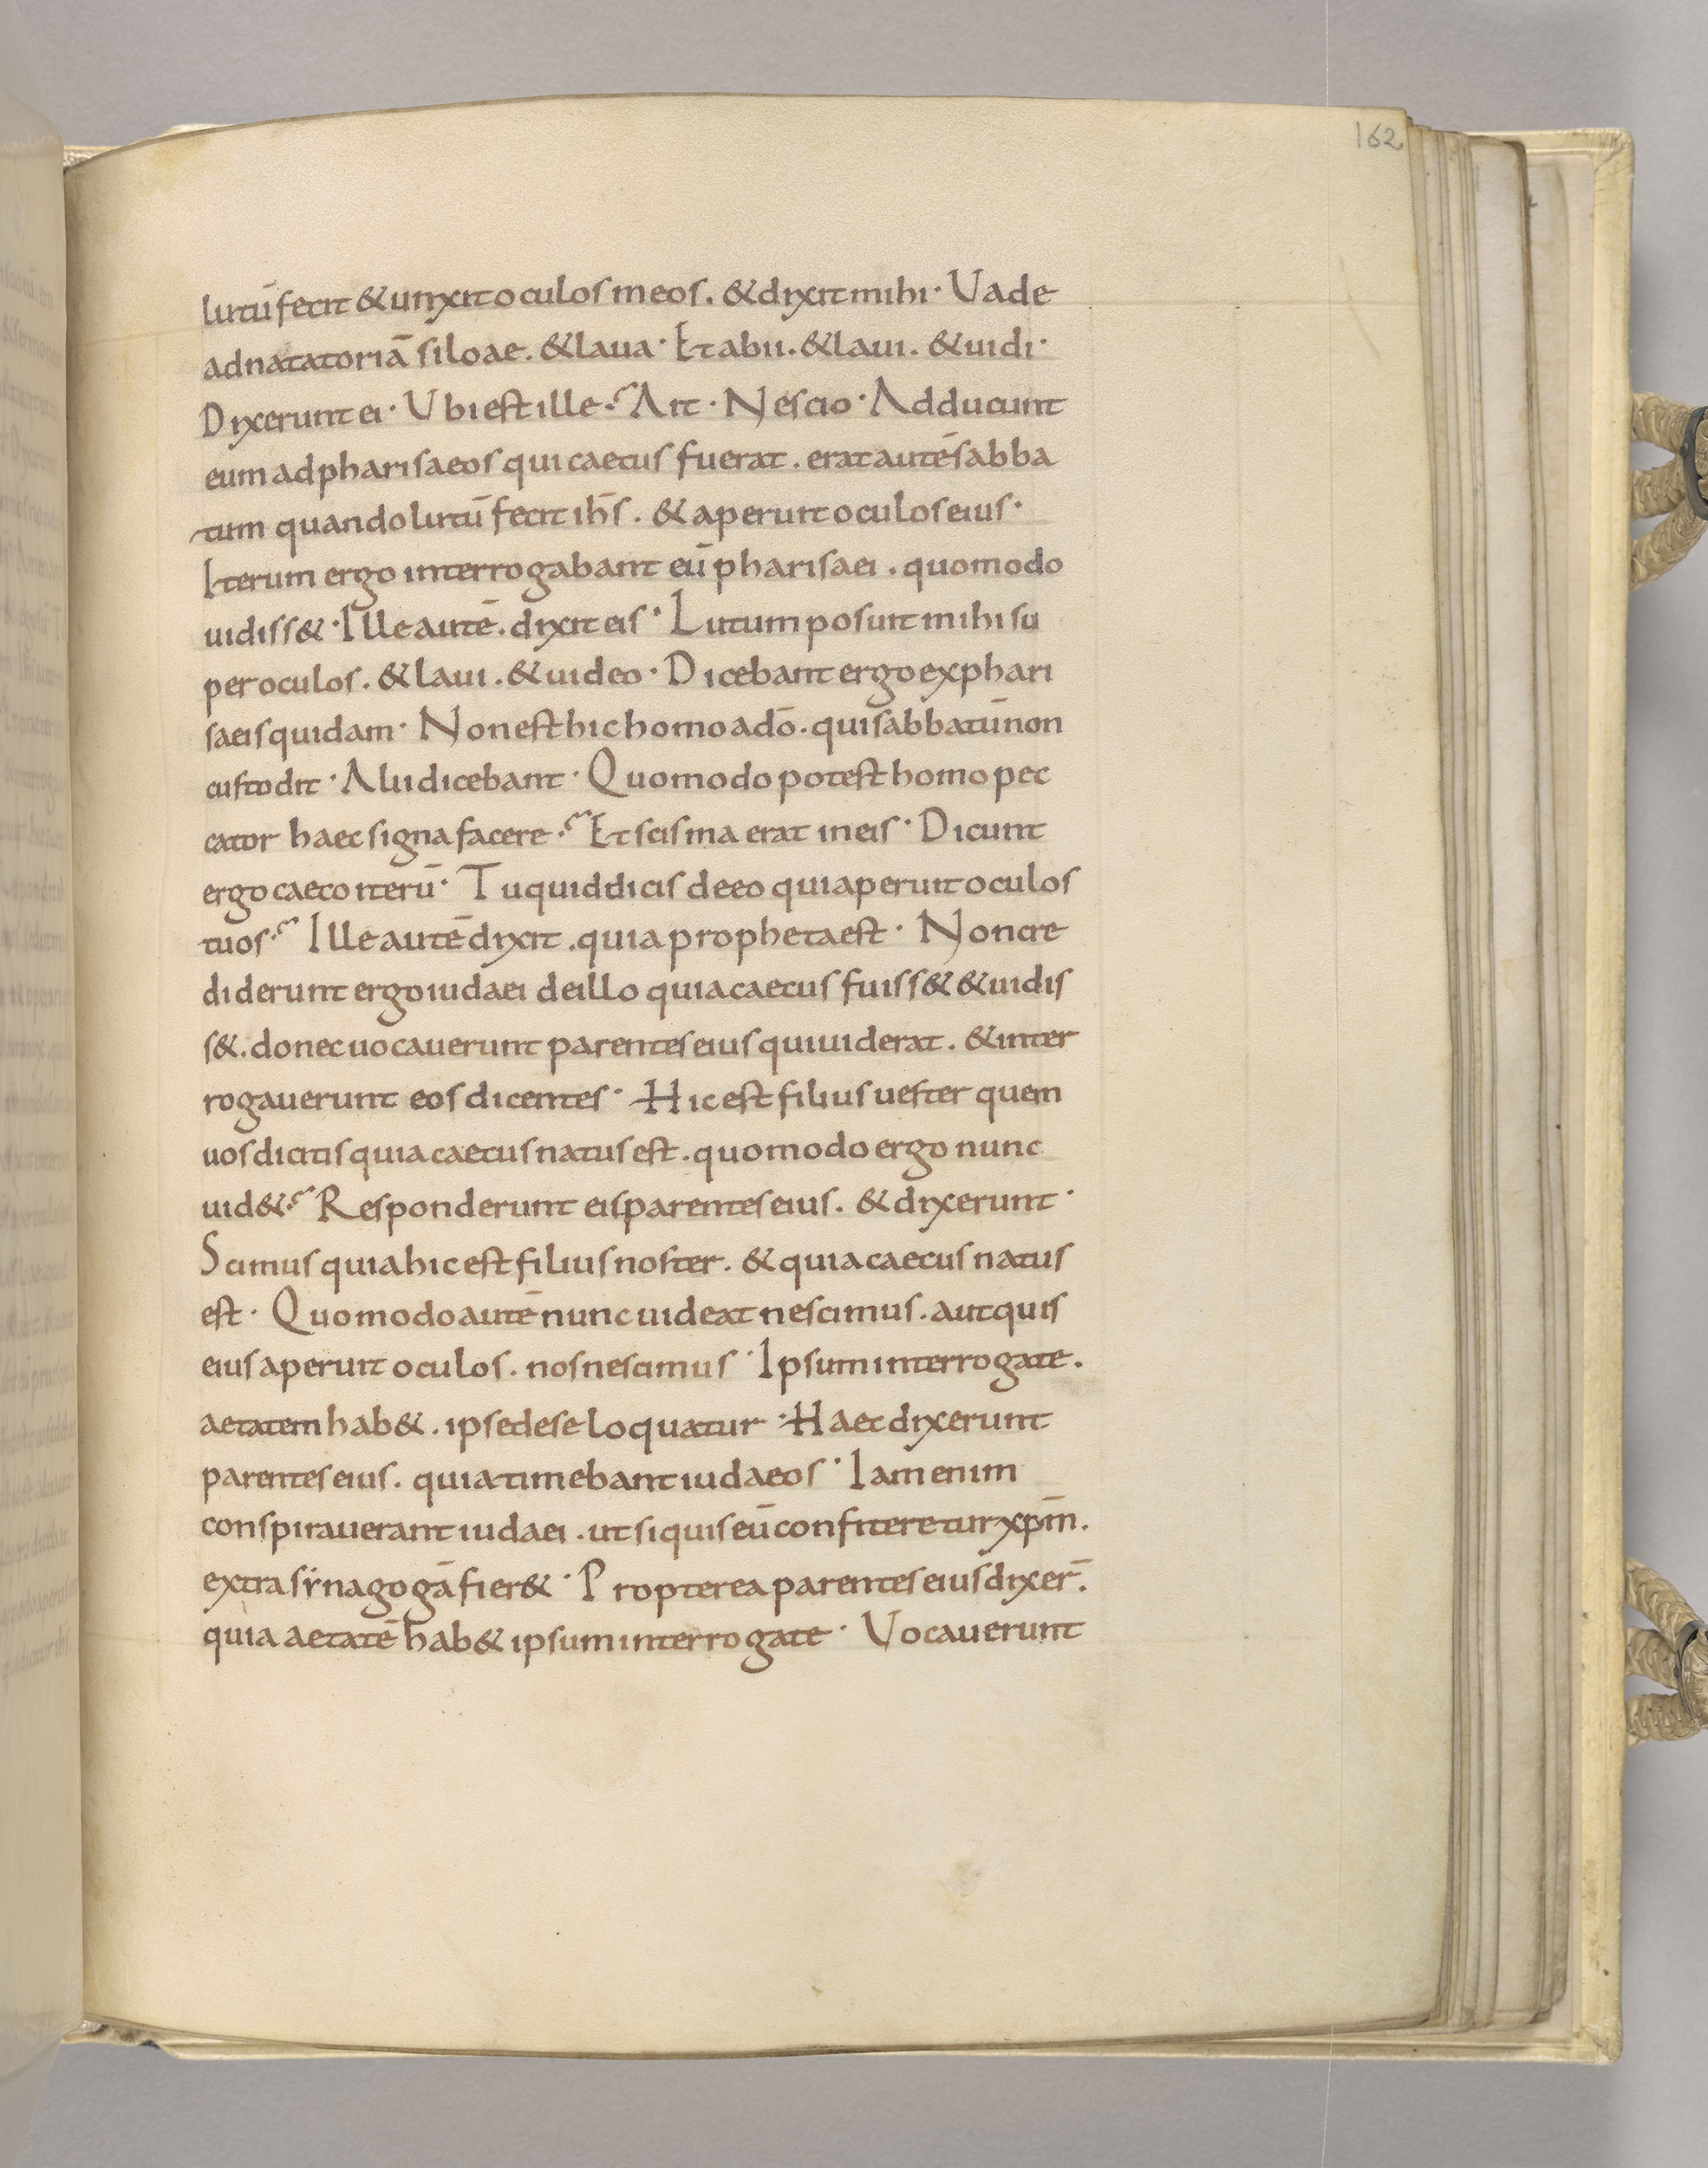 162
lutū fecit & unxit oculos meos. & dixit mihi· Vade
ad natatoriā siloae. & laua· Et abii. & laui. & uidi·
Dixerunt ei· Vbi est ille·? Ait· Nescio· Adducunt
eum ad pharisaeos qui caecus fuerat. erat autē sabba
tum quando lutū fecit ihs̄. & aperuit oculos eius·
Iterum ergo interrogabant eū pharisaei. quomodo
uidiss&· Ille autē. dixit eis· Lutum posuit mihi su
per oculos. & laui. & uideo· Dicebant ergo ex phari
saeis quidam· Non est hic homo a dō. qui sabbatū non
custodit· Alii dicebant· Quomodo potest homo pec
cator haec signa facere·? Et scisma erat in eis· Dicunt
ergo caeco iterū· Tu quid dicis de eo qui aperuit oculos
tuos·? Ille autē dixit. quia propheta est· Non cre
diderunt ergo iudaei de illo quia caecus fuiss& & uidis
s&. donec uocauerunt parentes eius qui uiderat. & inter
rogauerunt eos dicentes· Hic est filius uester quem
uos dicitis quia caecus natus est. quomodo ergo nunc
uid&·? Responderunt eis parentes eius. & dixerunt·
Scimus quia hic est filius noster. & quia caecus natus
est· Quomodo autē nunc uideat nescimus. aut quis
eius aperuit oculos. nos nescimus· Ipsum interrogate.
aetatem hab&. ipse de se loquatur· Haec dixerunt
parentes eius. quia timebant iudaeos· Iam enim
conspirauerant iudaei. ut si quis eū confiteretur xpm̄.
extra sẏnagogā fier&· Propterea parentes eius dixer̄.
quia aetatē hab& ipsum interrogate· Vocauerunt